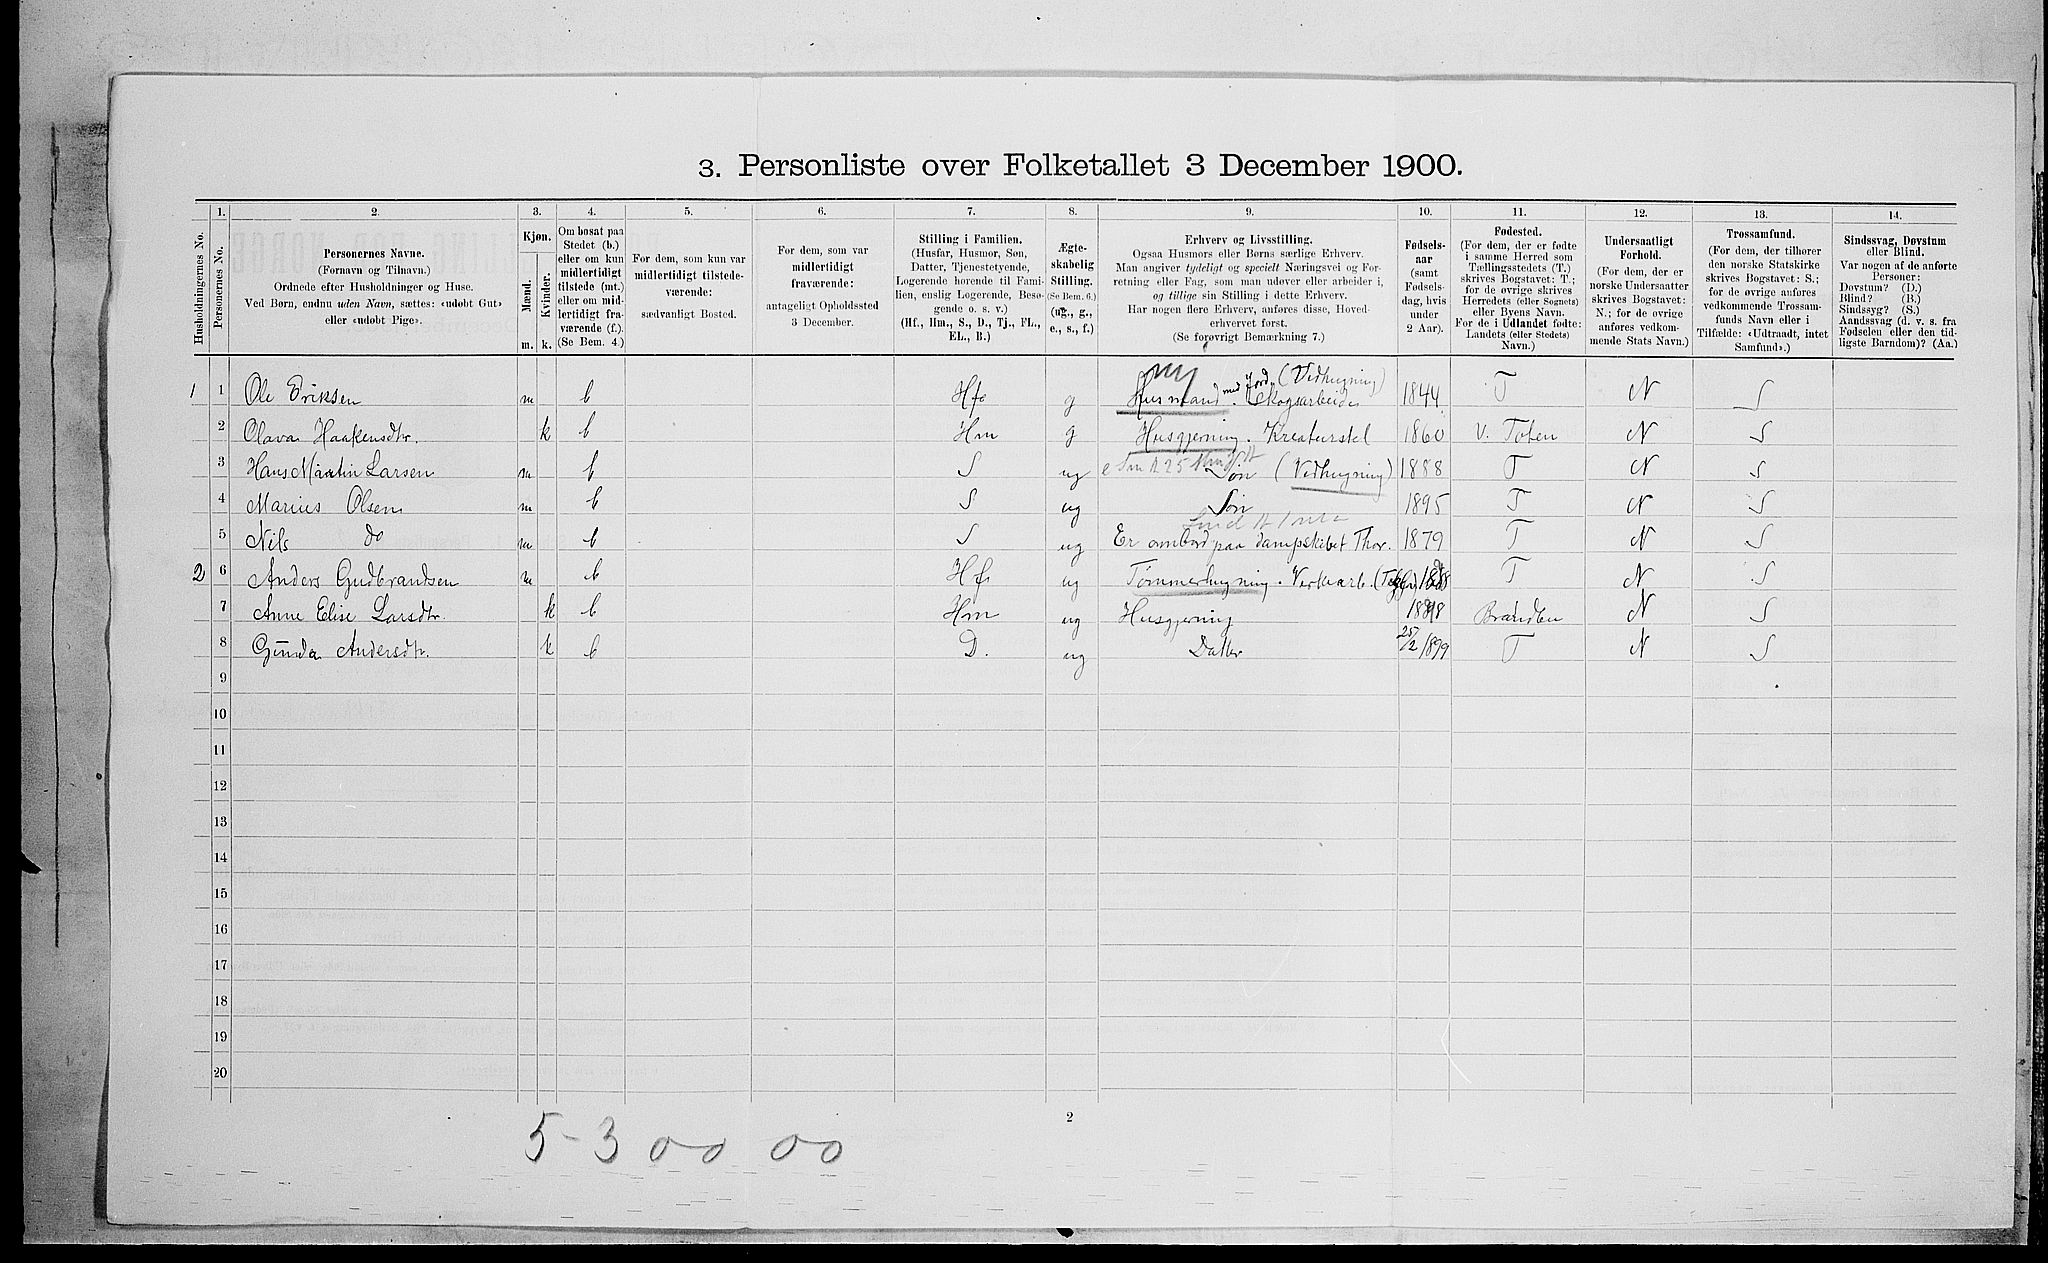 3. Personliste over Folketallet 3 December 1900.
1. 2. 3. 4. 5. 6. 7. 8. 9. 10. 11. 12. 13. 14.
Husholdningernes No.
Personernes No.
Personernes Navne.
(Fornavn og Tilnavn.)
Ordnede efter Husholdninger og Huse.
Ved Børn, endnu uden Navn, sættes: «udøbt Gut»
eller «udøbt Pige».
Kjøn.
Mænd.
Kvinder.
m. k.
Om bosat paa
Stedet (b.)
eller om kun
midlertidigt
tilstede (mt.)
eller om mid-
lertidigt fra-
værende (f.).
(Se Bem. 4.)
For dem, som kun var
midlertidigt tilstede-
værende:
sædvanligt Bosted.
For dem, som var
midlertidigt
fraværende:
antageligt Opholdssted
3 December.
Stilling i Familien.
(Husfar, Husmor, Søn,
Datter, Tjenestetyende,
Logerende hørende til Fami-
lien, enslig Logerende, Besø-
gende o. s. v.)
(Hf., Hm., S., D., Tj., FL.,
EL., B.)
Ægte-
skabelig
Stilling.
(Se Bem. 6.)
(ug., g.,
e., s., f.)
Erhverv og Livsstilling.
Ogsaa Husmors eller Børns særlige Erhverv.
Man angiver tydeligt og specielt Næringsvei og For-
retning eller Fag, som man udøver eller arbeider i,
og tillige sin Stilling i dette Erhverv.
Har nogen flere Erhverv, anføres disse, Hoved-
erhvervet først.
(Se forøvrigt Bemærkning 7.)
Fødsels-
aar
(samt
Fødsels-
dag, hvis
under
2 Aar).
Fødested.
(For dem, der er fødte
i samme Herred som
Tællingsstedets (T.)
skrives Bogstavet: T.;
for de øvrige skrives
Herredets (eller Sognets)
eller Byens Navn.
For de i Udlandet fødte:
Landets (eller Stedets)
Navn.)
Undersaatligt
Forhold.
(For dem, der er
norske Undersaatter
skrives Bogstavet:
N.; for de øvrige
anføres vedkom-
mende Stats Navn.)
Trossamfund.
(For dem, der tilhører
den norske Statskirke
skrives Bogstavet: S.;
for de øvrige anføres
vedkommende Trossam-
funds Navn eller i
Tilfælde: «Udtraadt, intet
Samfund».)
Sindssvag, Døvstum
eller Blind.
Var nogen af de anførte
Personer:
Døvstum? (D.)
Blind? (B.)
Sindssyg? (S.)
Aandssvag (d. v. s. fra
Fødselen eller den tid-
ligste Barndom)? (Aa.)
1 1 Ole Eriksen m b Hf g Husmand med Jord. (Vedhugning) Skogsarbeide 1844 T N S
2 Olava Haakensdtr. k b Hm g Husgjerning. Kreaturstel 1860 V. Toten N S
3 Hans Martin Larsen m b S ug Søn (Vedhugning) 1888 T N S
4 Marius Olsen m b S ug Søn 1895 T N S
5 Nils do m b S ug Er ombord paa Dampskibet Thor. 1879 T N S
2 6 Anders Gudbrandsen m b Hf ug Tømmerhugning. T N S
7 Anne Elise Larsdtr. k b Hm ug Husgjerning Brandbu N S
8 Gunda Andersdtr. k b D. ug Datter 25/2 1899 T N S
9
10
11
12
13
14
15
16
17
18
19
20
2
5-3 00 00